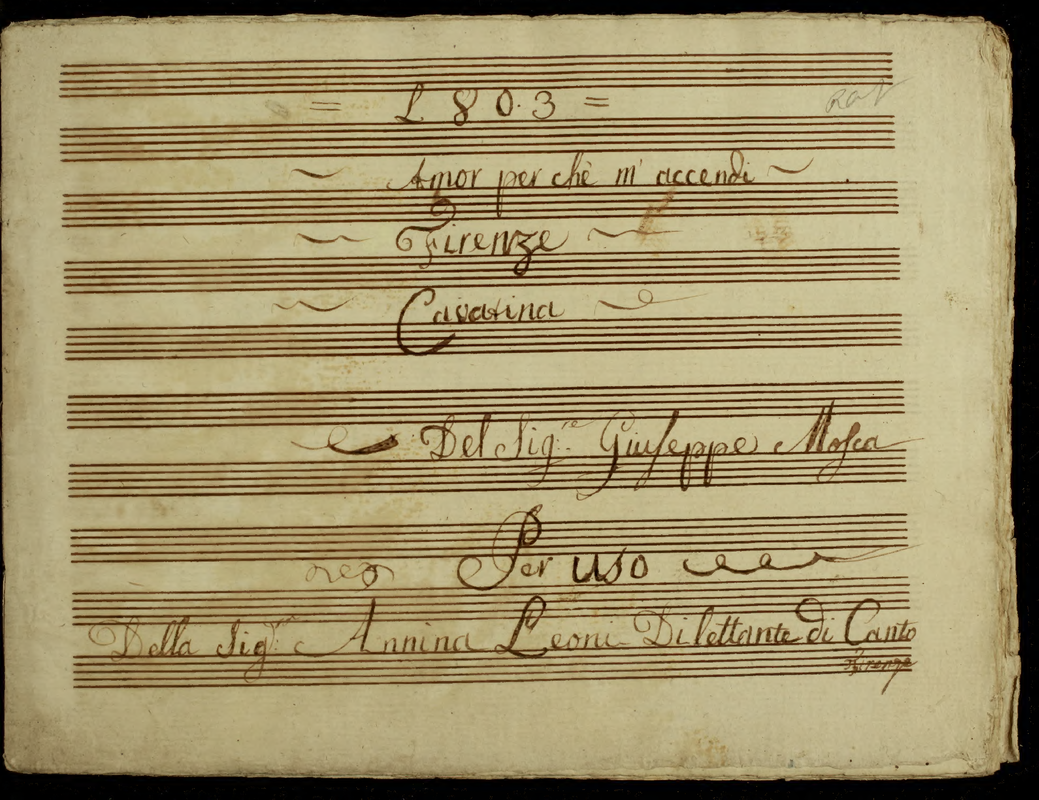 = 1803 =
Amor per chè m' accendi
Firenze
Cavatina
Del Sig.re Giuseppe Mosca
Per uso
Della Sig.ra Annina Leoni Dilettante di Canto
Firenze